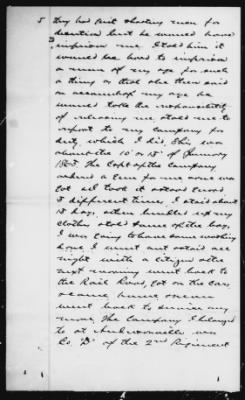 5 they had quit shooting men for
desertion but he would have
imprison me. I told him it
would be hard to imprison
a man of my age for such
a thing as that &he then said
on account of my age he
would take the responsibility
of releasing me, & told me to
report to my company for
duty, which I did, this was
about the 10 or 15th of January
1865. The Capt of the Company
ordered a Gun for me none was
got as I took it & stood Guard
3 different times, I staid about
18 days, then bundled up my
clothes & told some of the boys
I was going to have some washing
done, I went out & staid all
night with a citizen & the
next morning went back to
the Rail Road, got on the cars
& came home, never
went back to service any
more, The Company I belonged
to at
Co. "D" of the 2nd Regiment